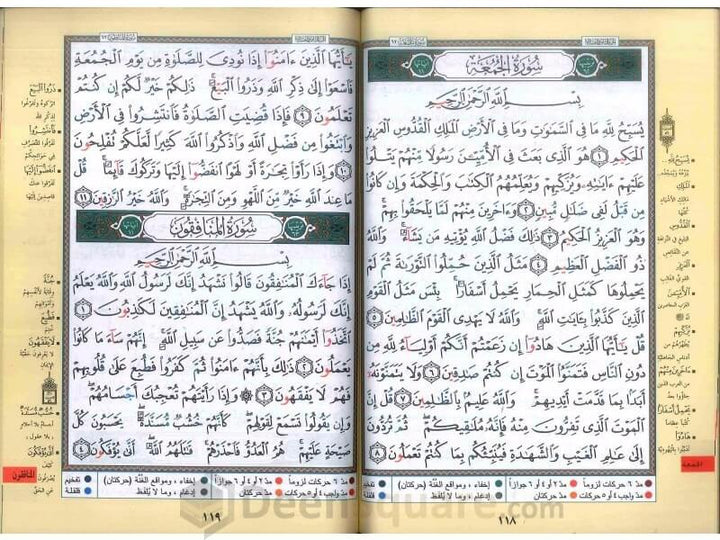 سُورَةُ الجُمُعَة
بِسْمِ اللَّهِ الرَّحْمَٰنِ الرَّحِيمِ
يُسَبِّحُ لِلَّهِ مَا فِي السَّمَٰوَٰتِ وَمَا فِي الْأَرْضِ الْمَلِكِ الْقُدُّوسِ الْعَزِيزِ
الْحَكِيمِ ١ هُوَ الَّذِي بَعَثَ فِي الْأُمِّيِّينَ رَسُولًا مِّنْهُمْ يَتْلُوا
عَلَيْهِمْ ءَايَٰتِهِ وَيُزَكِّيهِمْ وَيُعَلِّمُهُمُ الْكِتَٰبَ وَالْحِكْمَةَ وَإِن كَانُوا
مِن قَبْلُ لَفِي ضَلَٰلٍ مُّبِينٍ ٢ وَءَاخَرِينَ مِنْهُمْ لَمَّا يَلْحَقُوا بِهِمْ
وَهُوَ الْعَزِيزُ الْحَكِيمُ ٣ ذَٰلِكَ فَضْلُ اللَّهِ يُؤْتِيهِ مَن يَشَاءُ وَاللَّهُ
ذُو الْفَضْلِ الْعَظِيمِ ٤ مَثَلُ الَّذِينَ حُمِّلُوا التَّوْرَىٰةَ ثُمَّ لَمْ
يَحْمِلُوهَا كَمَثَلِ الْحِمَارِ يَحْمِلُ أَسْفَارًا بِئْسَ مَثَلُ الْقَوْمِ
الَّذِينَ كَذَّبُوا بِـَٔايَٰتِ اللَّهِ وَاللَّهُ لَا يَهْدِي الْقَوْمَ الظَّٰلِمِينَ ٥
قُلْ يَٰأَيُّهَا الَّذِينَ هَادُوا إِن زَعَمْتُمْ أَنَّكُمْ أَوْلِيَاءُ لِلَّهِ مِن
دُونِ النَّاسِ فَتَمَنَّوُا الْمَوْتَ إِن كُنتُمْ صَٰدِقِينَ ٦ وَلَا يَتَمَنَّوْنَهُ
أَبَدًا بِمَا قَدَّمَتْ أَيْدِيهِمْ وَاللَّهُ عَلِيمٌ بِالظَّٰلِمِينَ ٧ قُلْ إِنَّ
الْمَوْتَ الَّذِي تَفِرُّونَ مِنْهُ فَإِنَّهُ مُلَٰقِيكُمْ ثُمَّ تُرَدُّونَ
إِلَىٰ عَٰلِمِ الْغَيْبِ وَالشَّهَٰدَةِ فَيُنَبِّئُكُم بِمَا كُنتُمْ تَعْمَلُونَ ٨
الجمعة
مدّ ٦ حركات لزوماً مدّ ٢ أو ٤ أو ٦ جوازاً إخفاء، ومواقع الغُنّة (حركتان) تفخيم
مدّ واجب ٤ أو ٥ حركات مدّ حركتان إدغام، وما لا يُلفَظ قلقلة
١١٨
يَٰأَيُّهَا الَّذِينَ ءَامَنُوا إِذَا نُودِيَ لِلصَّلَوٰةِ مِن يَوْمِ الْجُمُعَةِ
فَاسْعَوْا إِلَىٰ ذِكْرِ اللَّهِ وَذَرُوا الْبَيْعَ ذَٰلِكُمْ خَيْرٌ لَّكُمْ إِن كُنتُمْ
تَعْلَمُونَ ٩ فَإِذَا قُضِيَتِ الصَّلَوٰةُ فَانتَشِرُوا فِي الْأَرْضِ
وَابْتَغُوا مِن فَضْلِ اللَّهِ وَاذْكُرُوا اللَّهَ كَثِيرًا لَّعَلَّكُمْ تُفْلِحُونَ
١٠ وَإِذَا رَأَوْا تِجَٰرَةً أَوْ لَهْوًا انفَضُّوا إِلَيْهَا وَتَرَكُوكَ قَائِمًا قُلْ
مَا عِندَ اللَّهِ خَيْرٌ مِّنَ اللَّهْوِ وَمِنَ التِّجَٰرَةِ وَاللَّهُ خَيْرُ الرَّٰزِقِينَ ١١
سُورَةُ المُنَافِقُون
بِسْمِ اللَّهِ الرَّحْمَٰنِ الرَّحِيمِ
إِذَا جَاءَكَ الْمُنَٰفِقُونَ قَالُوا نَشْهَدُ إِنَّكَ لَرَسُولُ اللَّهِ وَاللَّهُ يَعْلَمُ
إِنَّكَ لَرَسُولُهُ وَاللَّهُ يَشْهَدُ إِنَّ الْمُنَٰفِقِينَ لَكَٰذِبُونَ ١
اتَّخَذُوا أَيْمَٰنَهُمْ جُنَّةً فَصَدُّوا عَن سَبِيلِ اللَّهِ إِنَّهُمْ سَاءَ مَا كَانُوا
يَعْمَلُونَ ٢ ذَٰلِكَ بِأَنَّهُمْ ءَامَنُوا ثُمَّ كَفَرُوا فَطُبِعَ عَلَىٰ قُلُوبِهِمْ
فَهُمْ لَا يَفْقَهُونَ ٣ وَإِذَا رَأَيْتَهُمْ تُعْجِبُكَ أَجْسَامُهُمْ
وَإِن يَقُولُوا تَسْمَعْ لِقَوْلِهِمْ كَأَنَّهُمْ خُشُبٌ مُّسَنَّدَةٌ يَحْسَبُونَ كُلَّ
صَيْحَةٍ عَلَيْهِمْ هُمُ الْعَدُوُّ فَاحْذَرْهُمْ قَٰتَلَهُمُ اللَّهُ أَنَّىٰ يُؤْفَكُونَ ٤
المنافقون
مدّ ٦ حركات لزوماً مدّ ٢ أو ٤ أو ٦ جوازاً إخفاء، ومواقع الغُنّة (حركتان) تفخيم
مدّ واجب ٤ أو ٥ حركات مدّ حركتان إدغام، وما لا يُلفَظ قلقلة
١١٩
Deensquare.com